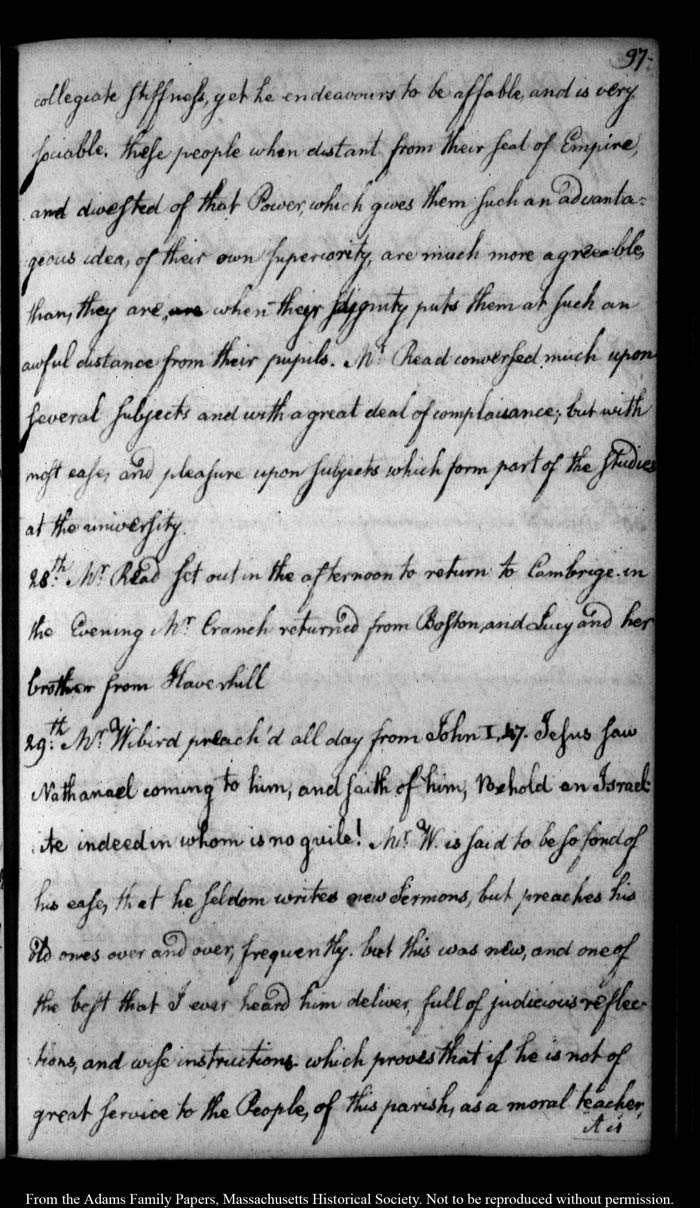 97.
collegiate stiffness, yet he endeavours to be affable, and is very
sociable. these people when distant from their seat of Empire,
and divested of that Power, which gives them such an advanta=
geous idea, of their own superiority, are much more agreeable,
than, they are, are when their dignity puts them at such an
awful distance from their pupils. Mr. Read conversed much upon
several subjects and with a great deal of complaisance; but with
most ease, and pleasure upon subjects which form part of the studies
at the university.
28th. Mr. Read set out in the afternoon to return to Cambrige. in
the Evening Mr. Cranch returned from Boston, and Lucy and her
brother from Haverhill
29th. Mr. Wibird preach'd all day from John I, 47. Jesus saw
Nathanael coming to him, and saith of him, Behold an Israel-
ite indeed in whom is no guile! Mr. W. is said to be so fond of
his ease, that he seldom writes new sermons, but preaches his
old ones over and over, frequently. but this was new, and one of
the best that I ever heard him deliver, full of judicious reflec-
tions, and wise instructions which proves that if he is not of
great service to the People, of this parish, as a moral teacher,
it is
From the Adams Family Papers, Massachusetts Historical Society. Not to be reproduced without permission.